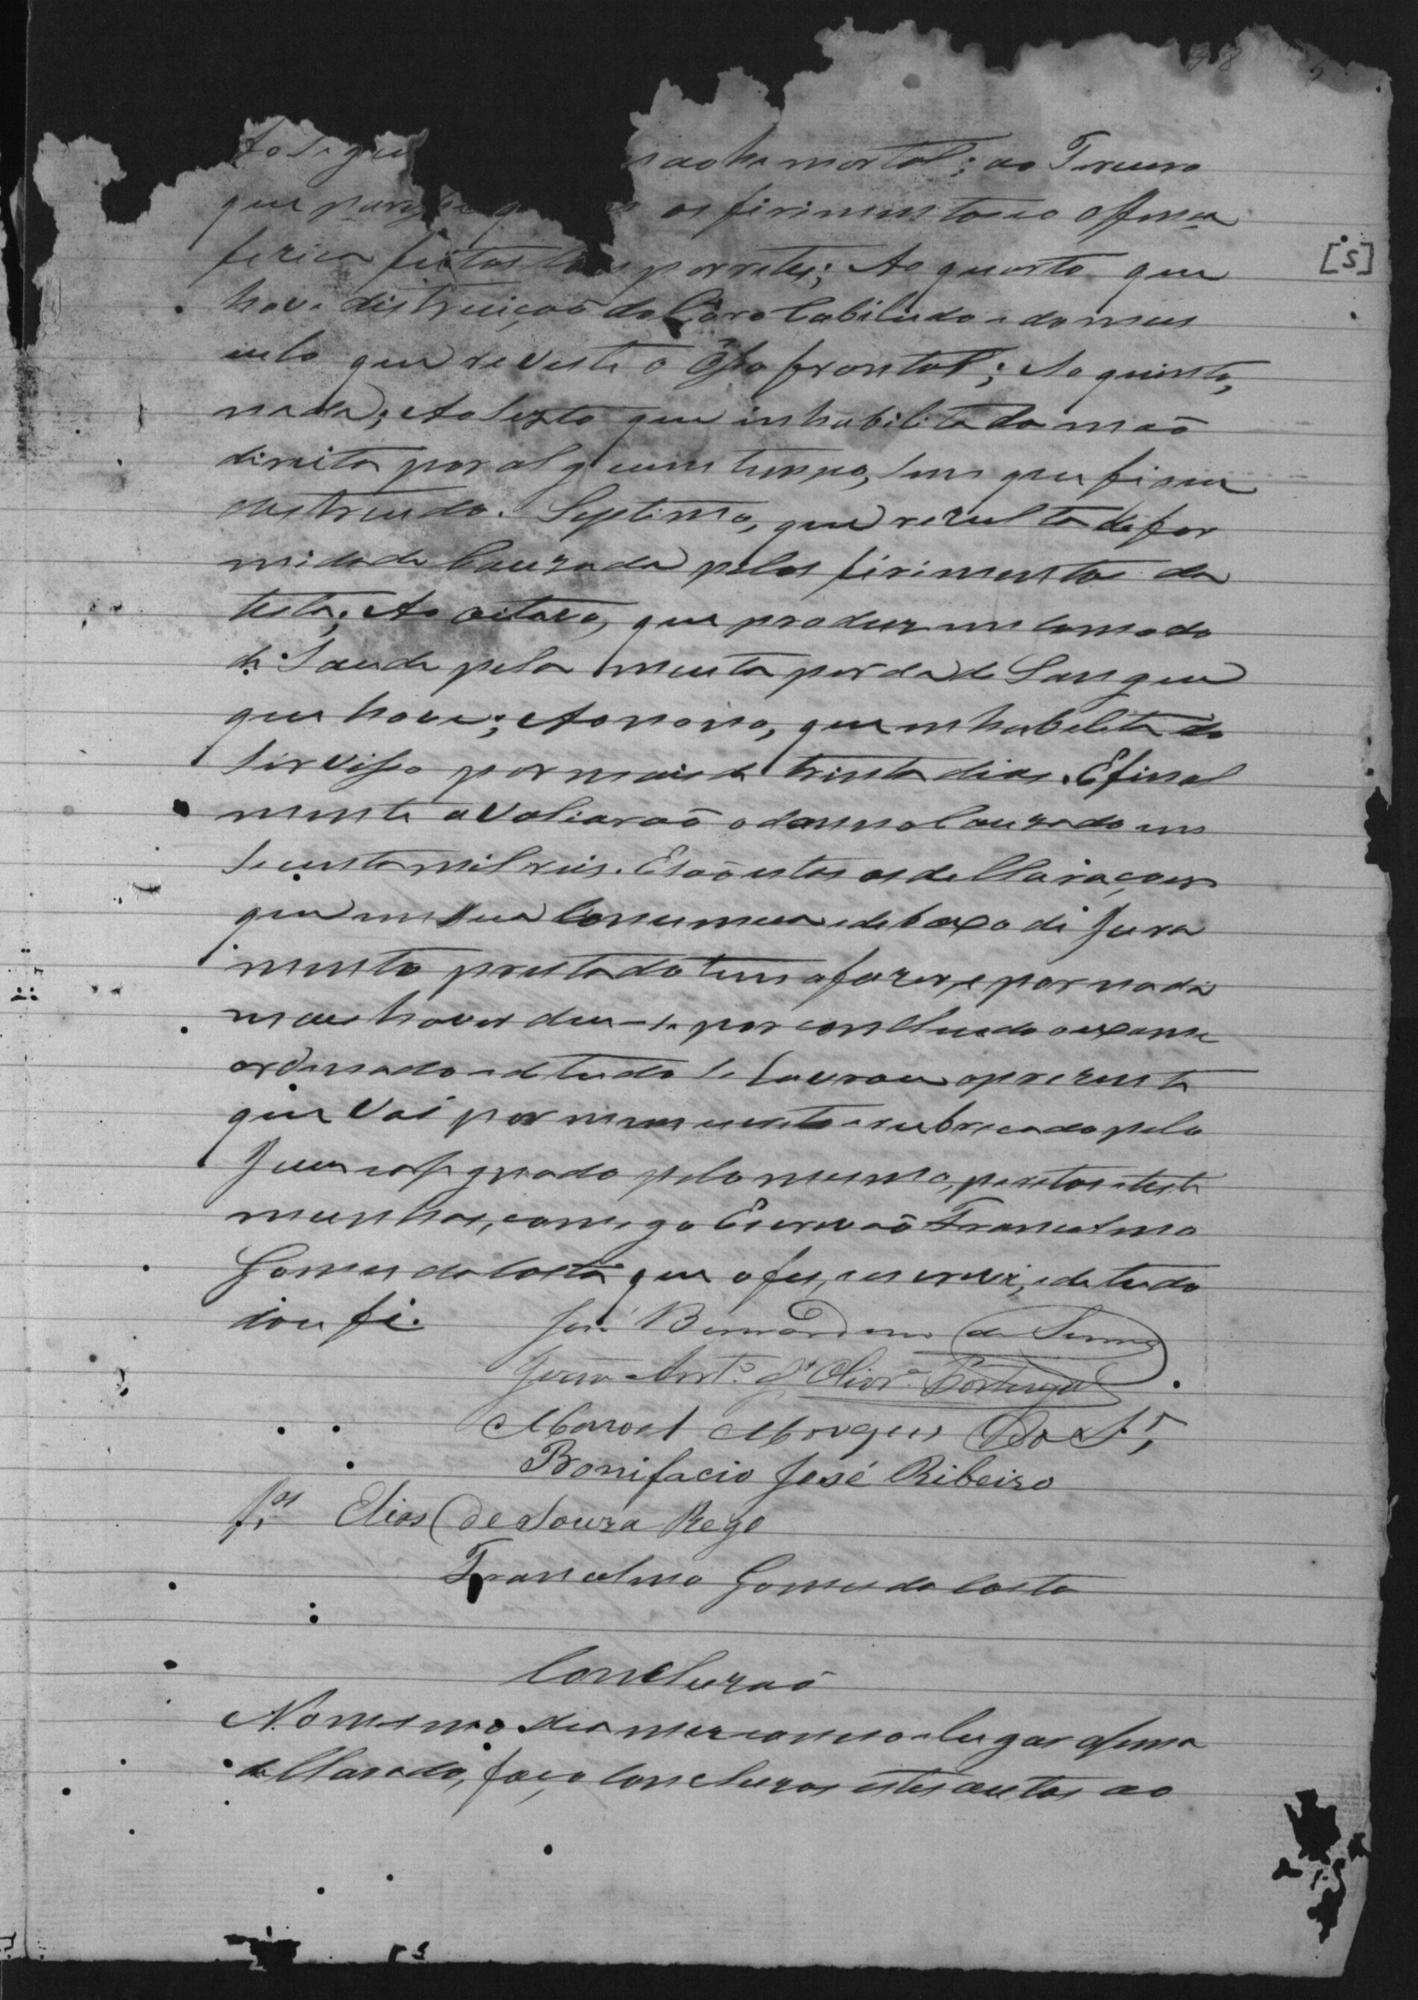 Ao segu
não he mortal; ao Terceiro
que parece q os ferimentos e offença
fizica feitas com porretes; Ao quarto que
hove distruição do Coro Cabiludo e do mus
culo que reveste o Ôsso frontal; Ao quinto,
nada; Ao sexto que inhabilita da mão
direita por algum tempo, sem que fique
destruida. Septimo, que rezulta defor
midade Cauzada pelos firimentos da
testa; Ao oitavo, que produz incomodo
de Saude pela muita perda de Sangue
que hove; Ao nono, que inhabelita do
Serviço por mais de trinta dias. E final
mente avaliarão o danno Cauzado em
secenta mil reis. E são estas as decllarações
que em sua Conciencia e debaxo de Jura
mento prestado tem a fazer, e por nada
mais haver deu-se por conclluido o exame
ordenado e de tudo se lavrou o prezente
que Vai por mim escrito e rubricado pelo
Juiz e assignado pelo mesmo, peritos e teste
munhas, comigo Escrivão Francelino
Gomes da Costa que o fes, escrevi, e de tudo
dou fé.
José Bernardino de Senna
João Ant.º d'Olivr.ª Portugal
Manoel Marques
Bonifacio José Ribeiro
Elias de Souza Rego
Francelino Gomes da Costa
Concluzaõ
No mesmo dia mez anno e lugar assima
decllarado, faço concluzos estes autos ao
[5]